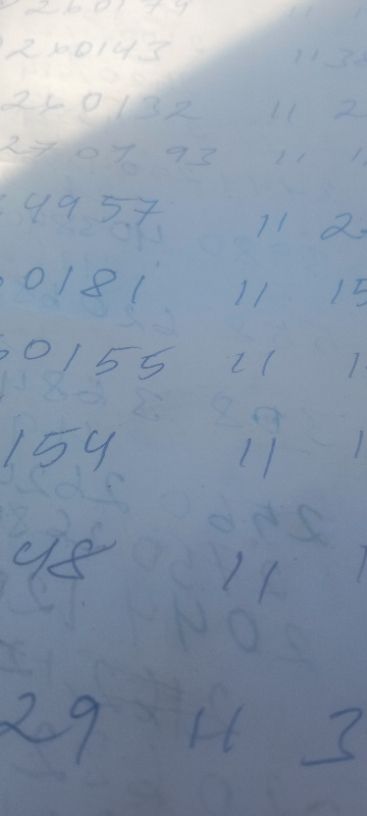 260174 11 1
260143 11 3
260132 11 2
270793 11 1
4957 11 2
0181 11 15
0155 11 1
154 11 1
48 11 1
29 11 3